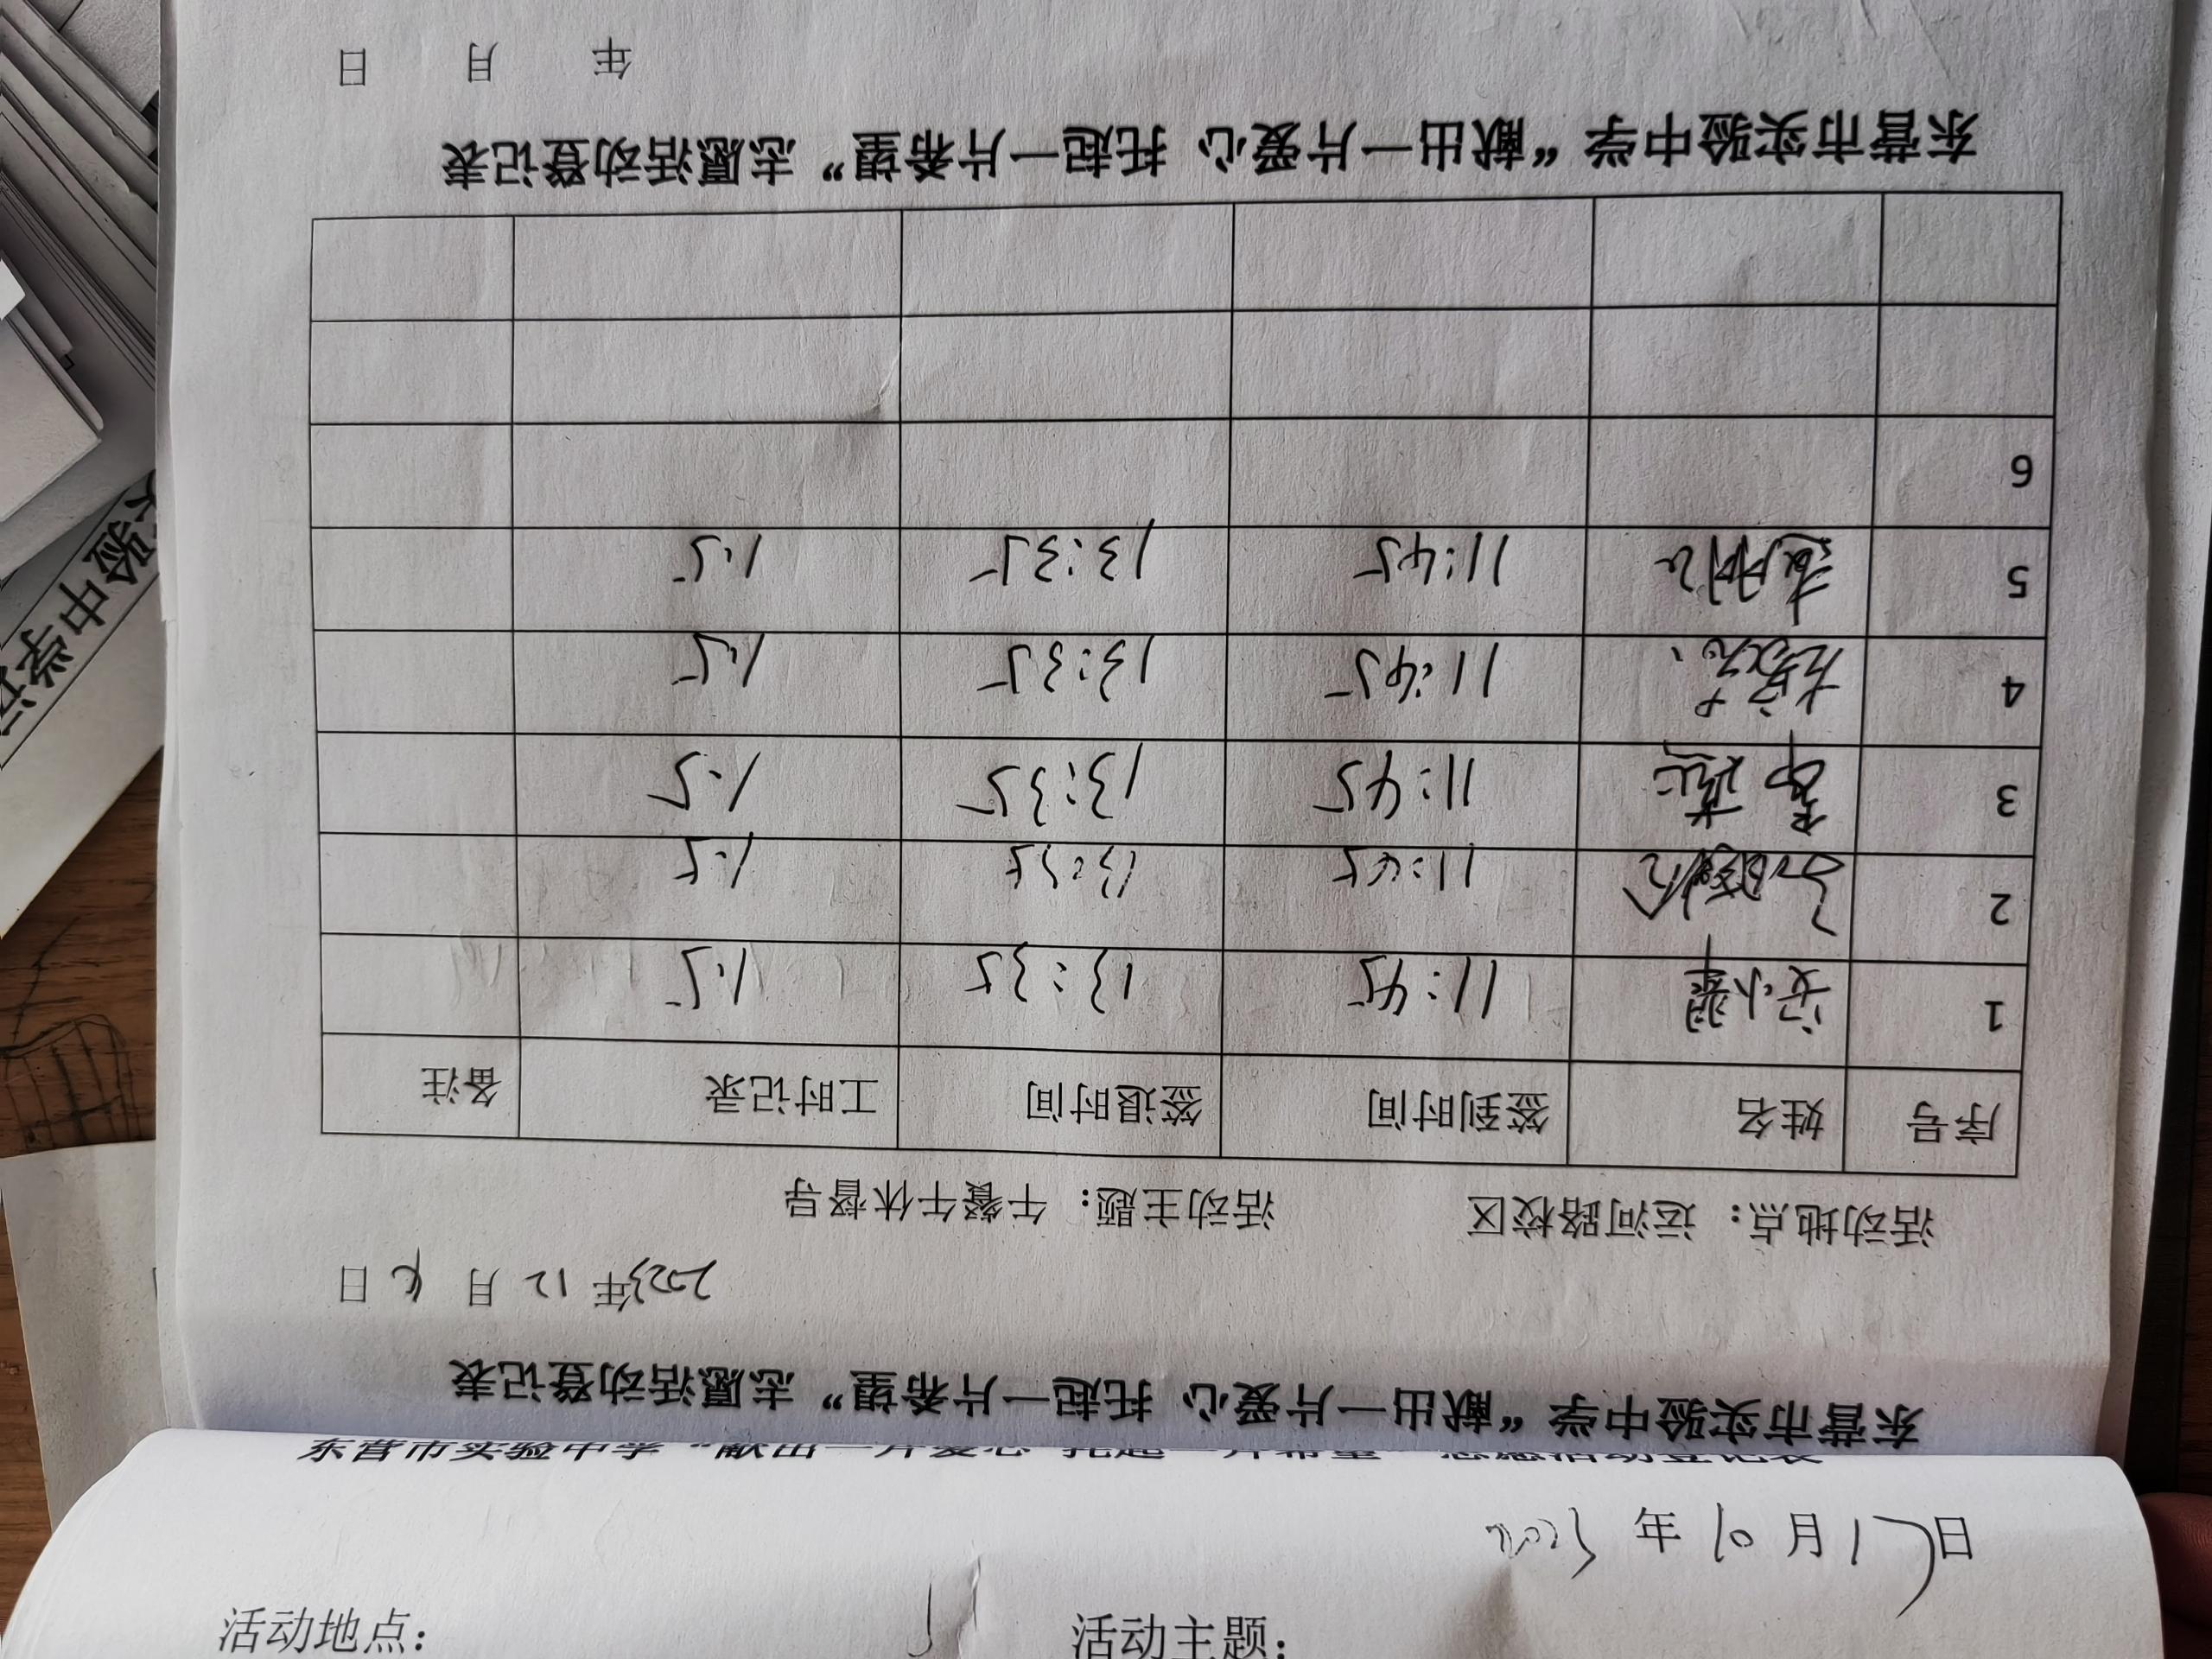 东营市实验中学“献出一片爱心 托起一片希望”志愿活动登记表
2023年 12 月 7 日
活动地点：运河路校区 活动主题：午餐午休督导
序号 姓名 签到时间 签退时间 工时记录 备注
1 11:45 13:35 1.5
2 11:45 13:35 1.5
3 11:45 13:35 1.5
4 11:45 13:35 1.5
5 11:45 13:35 1.5
6
东营市实验中学“献出一片爱心 托起一片希望”志愿活动登记表
年 月 日
东营市实验中学“献出一片爱心 托起一片希望”志愿活动登记表
2023 年 10 月 17日
活动地点： 活动主题：
验中学